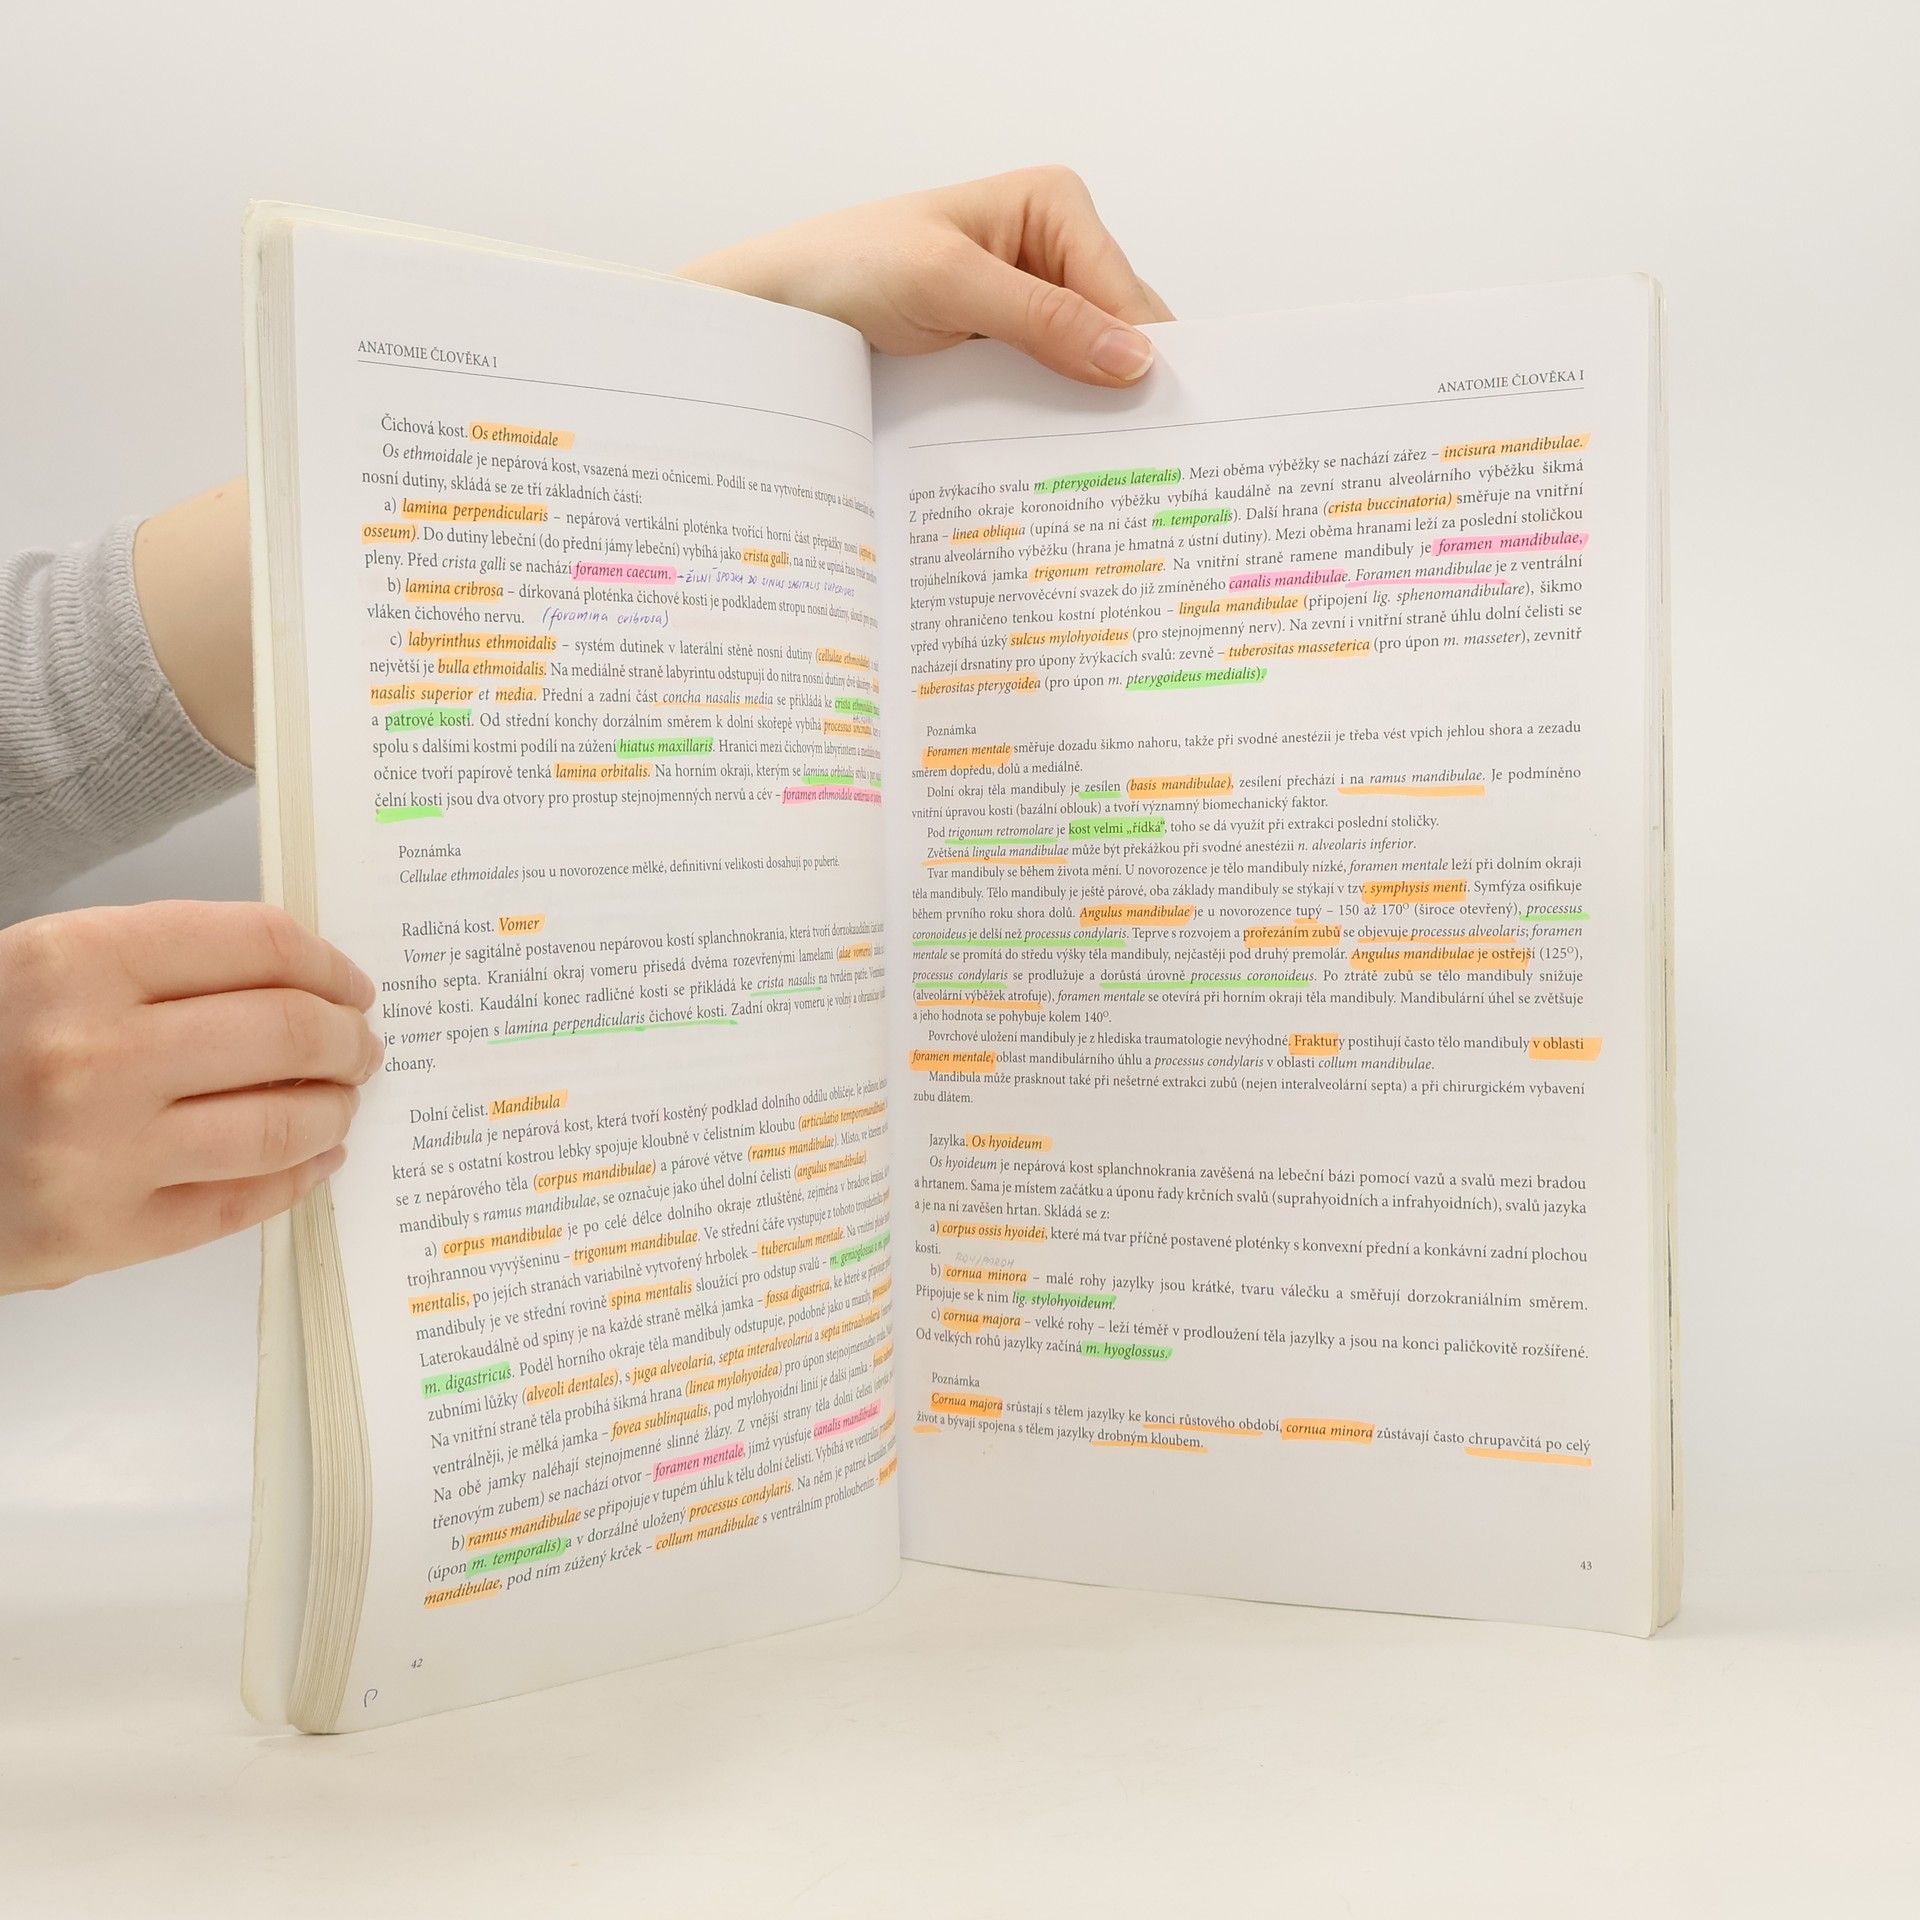 ANATOMIE ČLOVĚKA I
Čichová kost. Os ethmoidale
Os ethmoidale je nepárová kost, vsazená mezi očnicemi. Podílí se na vytvoření stropu a části laterální stěny
nosní dutiny, skládá se ze tří základních částí:
a) lamina perpendicularis – nepárová vertikální ploténka tvořící horní část přepážky nosní
osseum). Do dutiny lebeční (do přední jámy lebeční) vybíhá jako crista galli, na niž se upíná řasa tvrdé
pleny. Před crista galli se nachází foramen caecum. - ŽILNÍ SPOJKA DO SINUS SAGITALIS SUPERIORIS
b) lamina cribrosa – dírkovaná ploténka čichové kosti je podkladem stropu nosní dutiny, slouží pro
vláken čichového nervu. (foramina cribrosa)
c) labyrinthus ethmoidalis – systém dutinek v laterální stěně nosní dutiny (cellulae ethmoidales),
největší je bulla ethmoidalis. Na mediálně straně labyrintu odstupují do nitra nosní dutiny dvě skořepy –
nasalis superior et media. Přední a zadní část concha nasalis media se přikládá ke crista ethmoidalis
a patrové kosti. Od střední konchy dorzálním směrem k dolní skořepě vybíhá processus uncinatus,
spolu s dalšími kostmi podílí na zúžení hiatus maxillaris. Hranici mezi čichovým labyrintem a mediální
očnice tvoří papírově tenká lamina orbitalis. Na horním okraji, kterým se lamina orbitalis stýká s
čelní kosti jsou dva otvory pro prostup stejnojmenných nervů a cév – foramen ethmoidale anterius et
Poznámka
Cellulae ethmoidales jsou u novorozence mělké, definitivní velikosti dosahují po pubertě.
Radličná kost. Vomer
Vomer je sagitálně postavenou nepárovou kostí splanchnokrania, která tvoří dorzokaudální část
nosního septa. Kraniální okraj vomeru přisedá dvěma rozevřenými lamelami (alae vomeris)
klínové kosti. Kaudální konec radličné kosti se přikládá ke crista nasalis na tvrdém patře.
je vomer spojen s lamina perpendicularis čichové kosti. Zadní okraj vomeru je volný a ohraničuje
choany.
Dolní čelist. Mandibula
Mandibula je nepárová kost, která tvoří kostěný podklad dolního oddílu obličeje. Je jedinou
která se s ostatní kostrou lebky spojuje kloubně v čelistním kloubu (articulatio temporomandibularis
se z nepárového těla (corpus mandibulae) a párové větve (ramus mandibulae). Místo, ve kterém
mandibuly s ramus mandibulae, se označuje jako úhel dolní čelisti (angulus mandibulae).
a) corpus mandibulae je po celé délce dolního okraje ztluštěné, zejména v bradové krajině
trojhrannou vyvýšeninu – trigonum mandibulae. Ve střední čáře vystupuje z tohoto trojúhelníku
mentalis, po jejích stranách variabilně vytvořený hrbolek – tuberculum mentale. Na vnitřní ploše
mandibuly je ve střední rovině spina mentalis sloužící pro odstup svalů – m. genioglossus a m.
Laterokaudálně od spiny je na každé straně mělká jamka – fossa digastrica, ke které se připojuje
m. digastricus. Podél horního okraje těla mandibuly odstupuje, podobně jako u maxily,
zubními lůžky (alveoli dentales), s juga alveolaria, septa interalveolaria a septa intraalveolaria
Na vnitřní straně těla probíhá šikmá hrana (linea mylohyoidea) pro úpon stejnojmenného svalu.
ventrálněji, je mělká jamka – fovea sublinqualis, pod mylohyoidní linií je další jamka –
Na obě jamky naléhají stejnojmenné slinné žlázy. Z vnější strany těla dolní čelisti
třenovým zubem) se nachází otvor – foramen mentale, jímž vyúsťuje canalis mandibulae.
b) ramus mandibulae se připojuje v tupém úhlu k tělu dolní čelisti. Vybíhá ve ventrální
(úpon m. temporalis) a v dorzálně uložený processus condylaris. Na něm je patrné kraniálně
mandibulae, pod ním zúžený krček – collum mandibulae s ventrálním prohloubením –
42
ANATOMIE ČLOVĚKA I
úpon žvýkacího svalu m. pterygoideus lateralis). Mezi oběma výběžky se nachází zářez – incisura mandibulae.
Z předního okraje koronoidního výběžku vybíhá kaudálně na zevní stranu alveolárního výběžku šikmá
hrana – linea obliqua (upíná se na ni část m. temporalis). Další hrana (crista buccinatoria) směřuje na vnitřní
stranu alveolárního výběžku (hrana je hmatná z ústní dutiny). Mezi oběma hranami leží za poslední stoličkou
trojúhelníková jamka trigonum retromolare. Na vnitřní straně ramene mandibuly je foramen mandibulae,
kterým vstupuje nervověcévní svazek do již zmíněného canalis mandibulae. Foramen mandibulae je z ventrální
strany ohraničeno tenkou kostní ploténkou – lingula mandibulae (připojení lig. sphenomandibulare), šikmo
vpřed vybíhá úzký sulcus mylohyoideus (pro stejnojmenný nerv). Na zevní i vnitřní straně úhlu dolní čelisti se
nacházejí drsnatiny pro úpony žvýkacích svalů: zevně – tuberositas masseterica (pro úpon m. masseter), zevnitř
– tuberositas pterygoidea (pro úpon m. pterygoideus medialis).
Poznámka
Foramen mentale směřuje dozadu šikmo nahoru, takže při svodné anestézii je třeba vést vpich jehlou shora a zezadu
směrem dopředu, dolů a mediálně.
Dolní okraj těla mandibuly je zesílen (basis mandibulae), zesílení přechází i na ramus mandibulae. Je podmíněno
vnitřní úpravou kosti (bazální oblouk) a tvoří významný biomechanický faktor.
Pod trigonum retromolare je kost velmi „řídká“, toho se dá využít při extrakci poslední stoličky.
Zvětšená lingula mandibulae může být překážkou při svodné anestézii n. alveolaris inferior.
Tvar mandibuly se během života mění. U novorozence je tělo mandibuly nízké, foramen mentale leží při dolním okraji
těla mandibuly. Tělo mandibuly je ještě párové, oba základy mandibuly se stýkají v tzv. symphysis menti. Symfýza osifikuje
během prvního roku shora dolů. Angulus mandibulae je u novorozence tupý – 150 až 170⁰ (široce otevřený), processus
coronoideus je delší než processus condylaris. Teprve s rozvojem a prořezáním zubů se objevuje processus alveolaris; foramen
mentale se promítá do středu výšky těla mandibuly, nejčastěji pod druhý premolár. Angulus mandibulae je ostřejší (125⁰),
processus condylaris se prodlužuje a dorůstá úrovně processus coronoideus. Po ztrátě zubů se tělo mandibuly snižuje
(alveolární výběžek atrofuje), foramen mentale se otevírá při horním okraji těla mandibuly. Mandibulární úhel se zvětšuje
a jeho hodnota se pohybuje kolem 140⁰.
Povrchové uložení mandibuly je z hlediska traumatologie nevýhodné. Fraktury postihují často tělo mandibuly v oblasti
foramen mentale, oblast mandibulárního úhlu a processus condylaris v oblasti collum mandibulae.
Mandibula může prasknout také při nešetrné extrakci zubů (nejen interalveolární septa) a při chirurgickém vybavení
zubu dlátem.
Jazylka. Os hyoideum
Os hyoideum je nepárová kost splanchnokrania zavěšená na lebeční bázi pomocí vazů a svalů mezi bradou
a hrtanem. Sama je místem začátku a úponu řady krčních svalů (suprahyoidních a infrahyoidních), svalů jazyka
a je na ní zavěšen hrtan. Skládá se z:
a) corpus ossis hyoidei, které má tvar příčně postavené ploténky s konvexní přední a konkávní zadní plochou
kosti.
b) cornua minora – malé rohy jazylky jsou krátké, tvaru válečku a směřují dorzokraniálním směrem.
Připojuje se k nim lig. stylohyoideum.
c) cornua majora – velké rohy – leží téměř v prodloužení těla jazylky a jsou na konci paličkovitě rozšířené.
Od velkých rohů jazylky začíná m. hyoglossus.
Poznámka
Cornua majora srůstají s tělem jazylky ke konci růstového období, cornua minora zůstávají často chrupavčitá po celý
život a bývají spojena s tělem jazylky drobným kloubem.
43